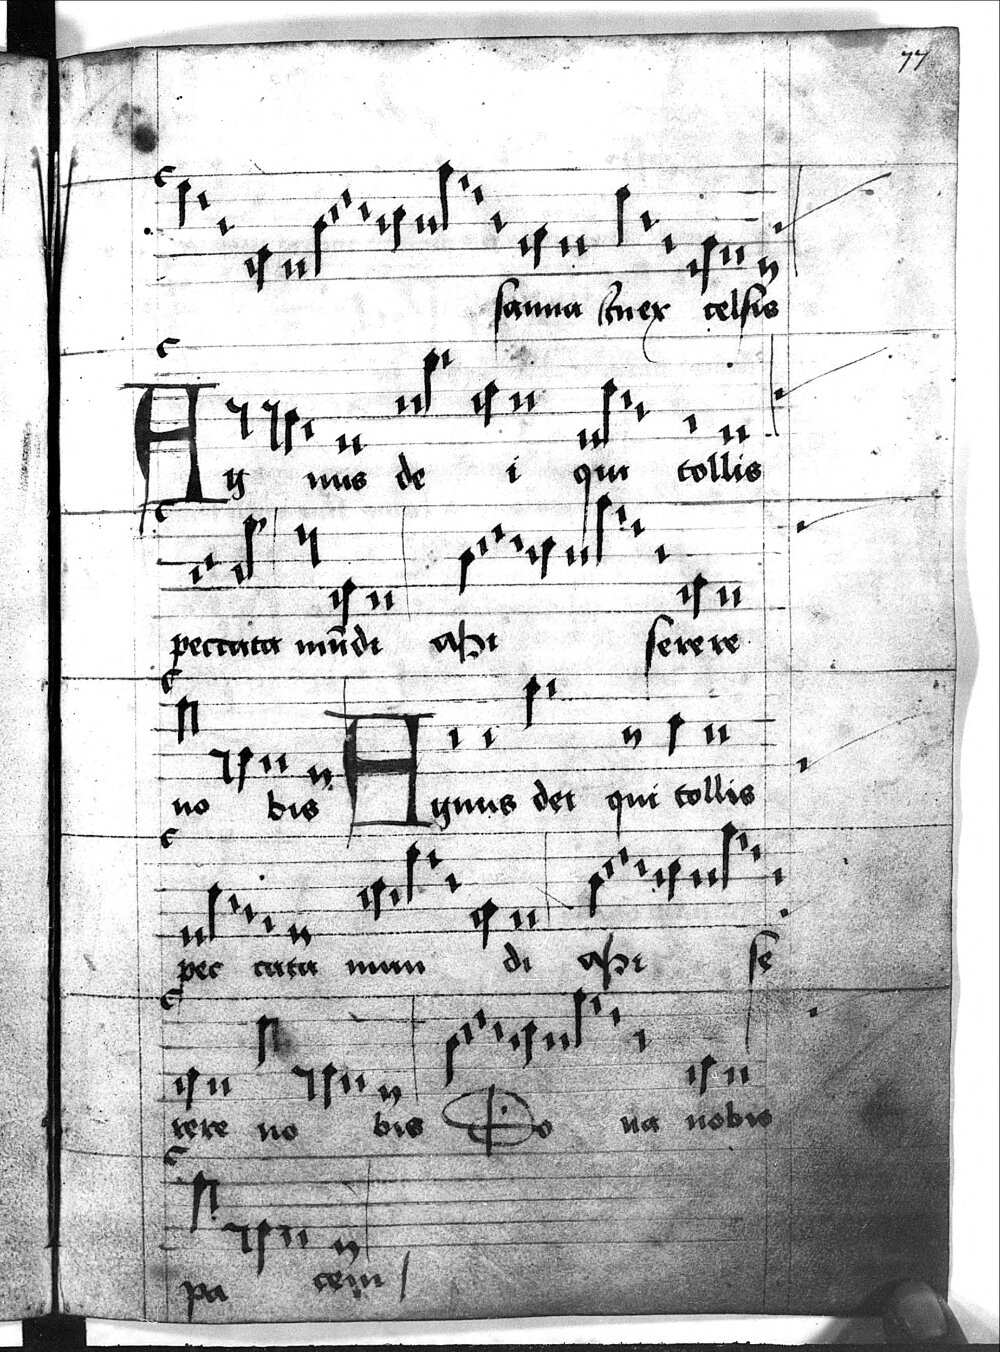 77
sanna in ex celsis
Ag nus de i qui tollis
peccata mūdi mi serere
no bis Agnus dei qui tollis
pec cata mun di mi se
rere no bis Do na nobis
pa cem